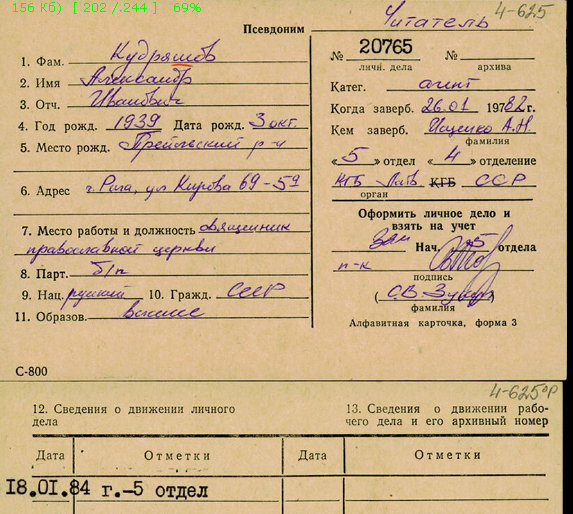 156 Кб) [ 202 / 244 ] 69%
4-625
Псевдоним Читатель
1. Фам. Кудряшов
2. Имя Александр
3. Отч. Иванович
4. Год рожд. 1939 Дата рожд. 3 окт.
5. Место рожд. Прейльский р-н
6. Адрес г. Рига, ул Кирова 69-59
7. Место работы и должность священник
православной церкви
8. Парт. б/п
9. Нац. русский 10. Гражд. СССР
11. Образов. высшее
С-800
№ 20765 №
личн. дела архива
Катег. агент
Когда заверб. 26.01 1982 г.
Кем заверб. Ищенко А.Н.
фамилия
«5» отдел «4» отделение
КГБ Латв КГБ ССР
орган
Оформить личное дело и
взять на учет
Зам Нач. 5 отдела
п-к
подпись
(С.В. )
фамилия
Алфавитная карточка, форма 3
4-625 ор
12. Сведения о движении личного
дела
13. Сведения о движении рабо-
чего дела и его архивный номер
Дата Отметки Дата Отметки
18.01.84 г.-5 отдел